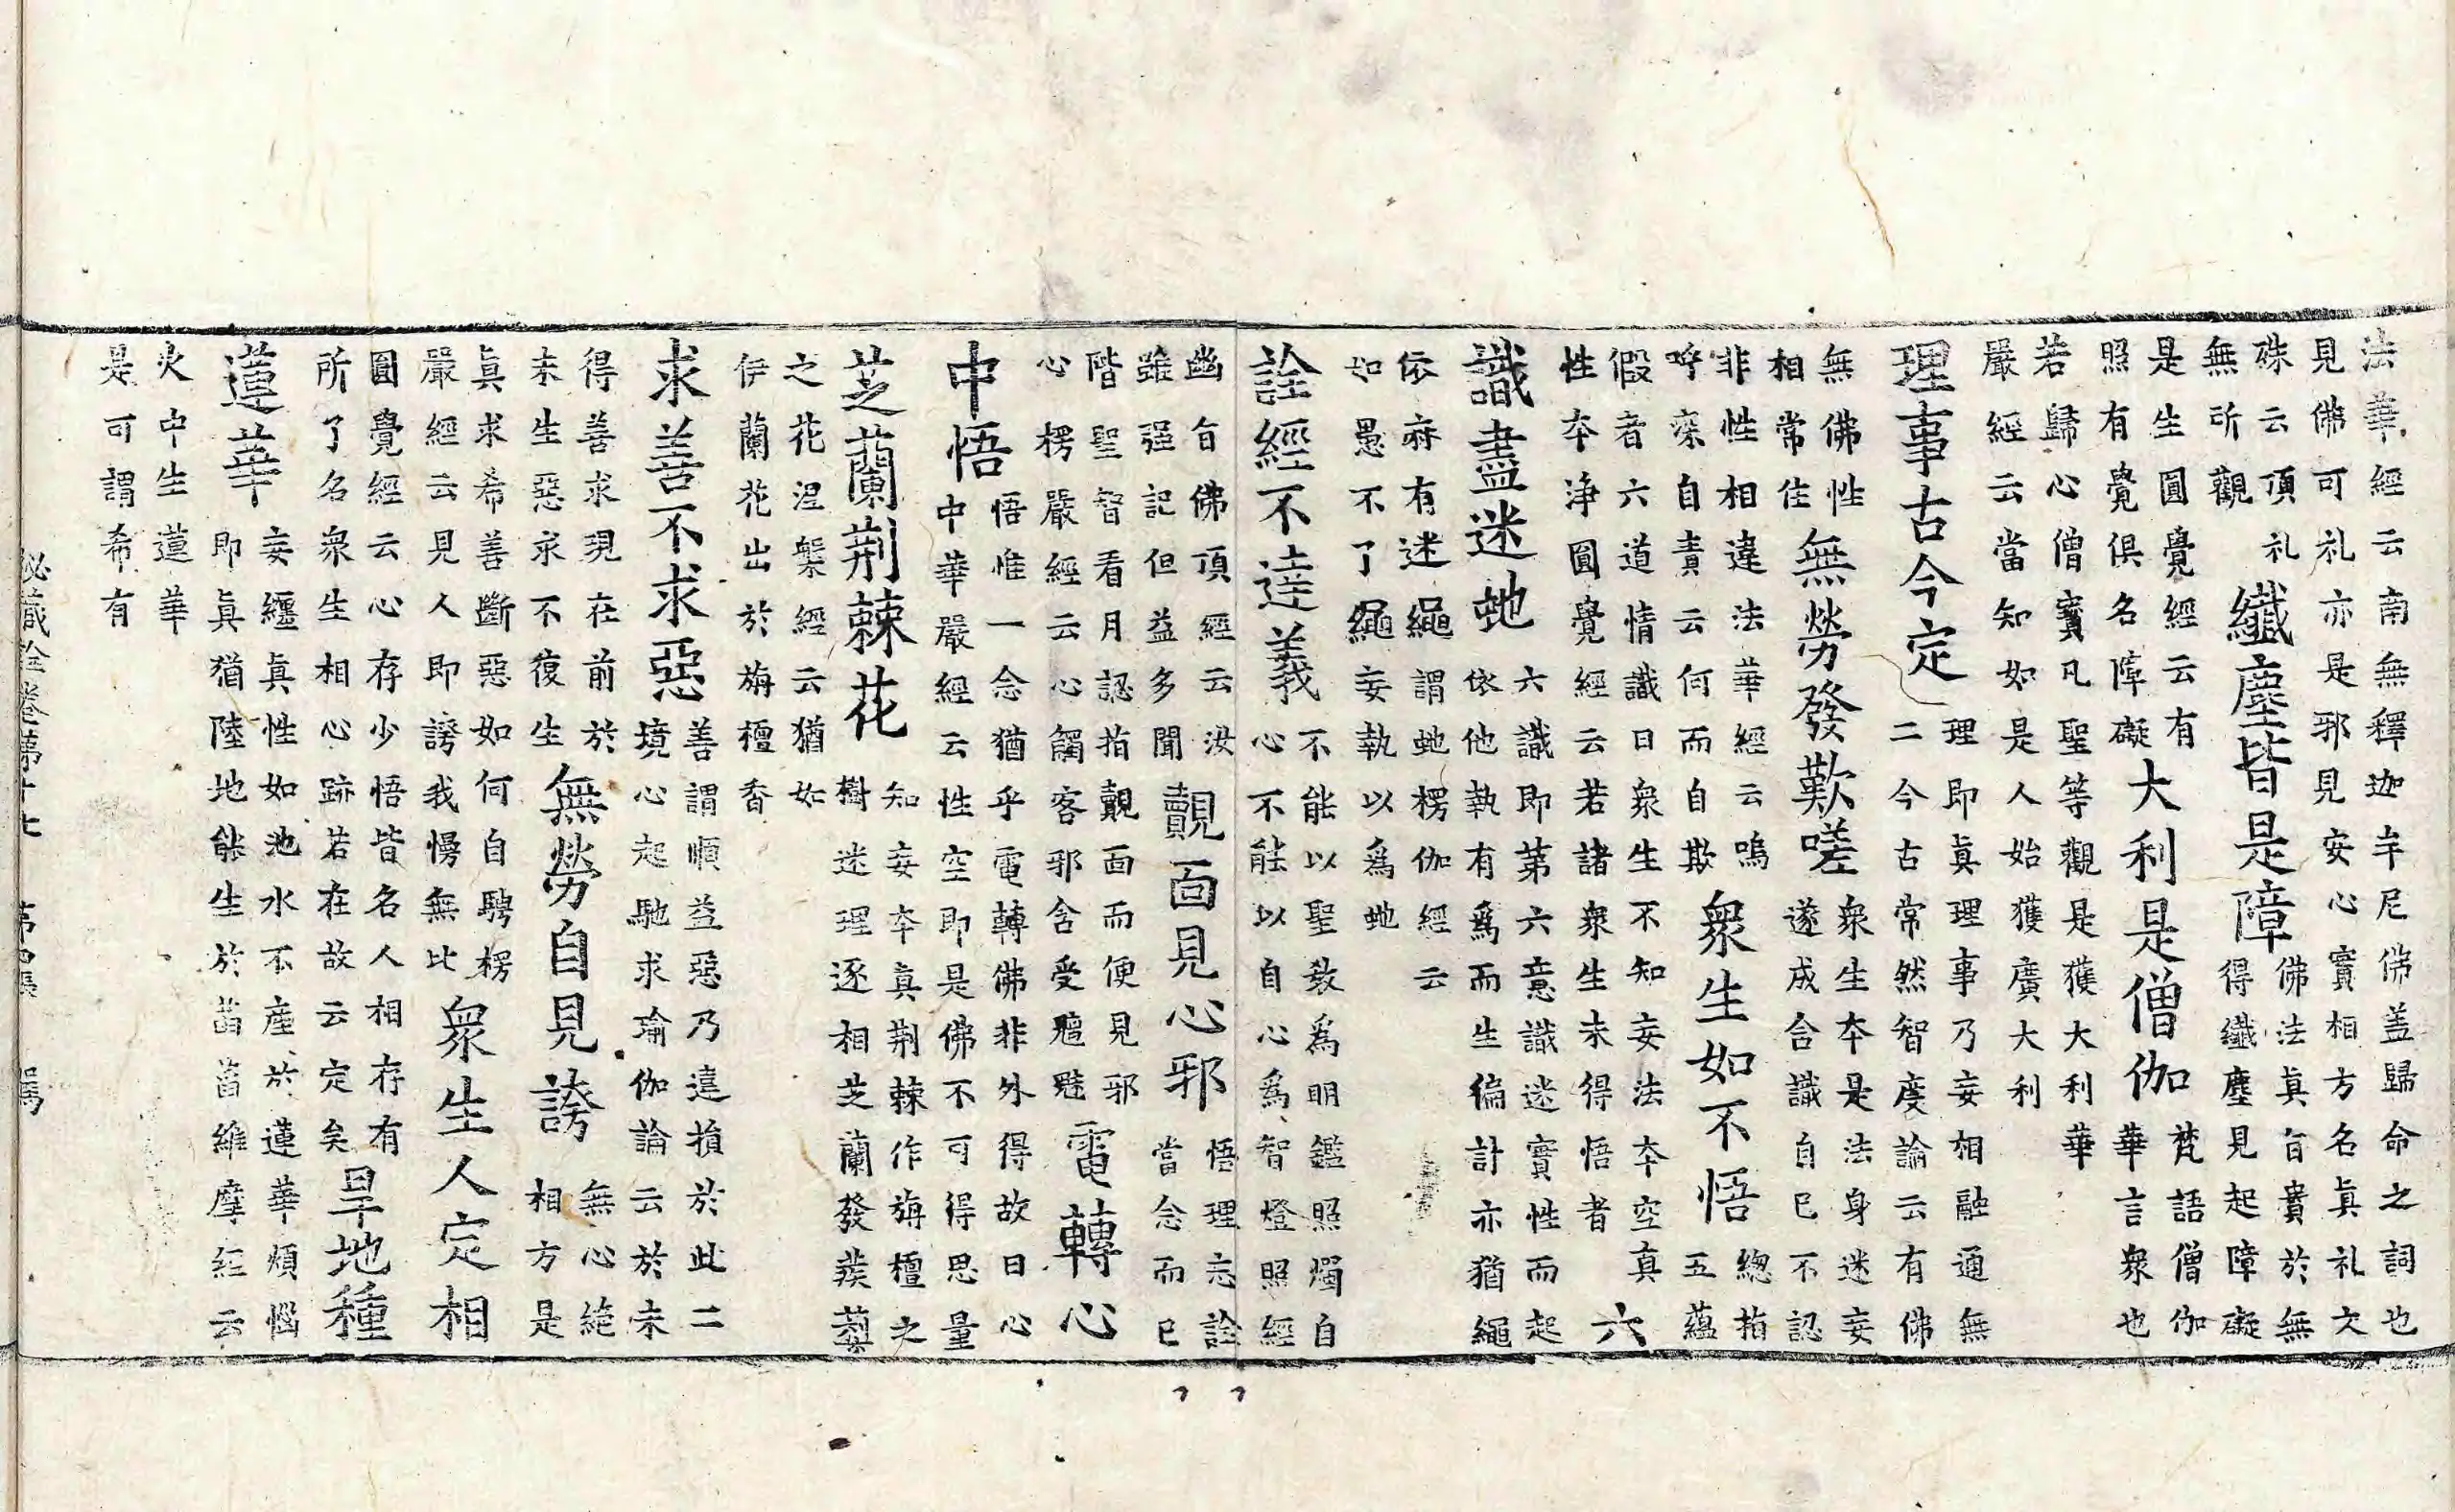 法華經云南無釋迦牟尼佛盖歸命之詞也
見佛可礼亦是邪見安心實相方名眞礼文
殊云頂礼
無所觀
纖塵皆是障
佛法眞旨貴於無
得纖塵見起障礙
是生圓覺經云有
照有覺俱名障礙
大利是僧伽
梵語僧伽
華言衆也
若歸心僧寳凡聖等觀是獲大利華
嚴經云當知如是人始獲廣大利
理事古今定
理即眞理事乃妄相融通無
二今古常然智度論云有佛
無佛性
相常住
無勞發歎嗟
衆生本是法身迷妄
遂成含識自巳不認
非性相違法華經云嗚
呼深自責云何而自欺
衆生如不悟
惣指
五蘊
假者六道情識曰衆生不知妄法本空真
性本淨圓覺經云若諸衆生未得悟者
六
識盡迷虵
六識即第六意識迷實性而起
依他執有爲而生徧計亦猶繩
依麻有迷繩謂虵楞伽經云
如愚不了繩妄執以爲虵
詮經不達義
不能以聖教爲明鑑照燭自
心不能以自心爲智燈照經
幽旨佛頂經云汝
雖强記但益多聞
覿面見心邪
悟理忘詮
當念而巳
階聖智看月認指覿面而便見邪
心楞嚴經云心觸客邪含受魑魅
電轉心
中悟
悟惟一念猶乎電轉佛非外得故曰心
中華嚴經云性空即是佛不可得思量
芝蘭荆棘花
知妄本真荆棘作旃檀之
樹迷理逐相芝蘭發蒺䔧
之花涅槃經云猶如
伊蘭花出於旃檀香
求善不求惡
善謂順益惡乃違損於此二
境心起馳求瑜伽論云於未
得善求現在前於
未生惡求不復生
無勞自見誇
無心絶
相方是
眞求希善斷惡如何自騁楞
嚴經云見人即誇我慢無比
衆生人定相
圓覺經云心存少悟皆名人相存有
所了名衆生相心跡若在故云定矣
旱地種
蓮華
妄纏眞性如池水不産於蓮華煩惱
即眞猶陸地能生於菡萏維摩經云
火中生蓮華
是可謂希有
秘藏詮卷第十七　第四張　馮